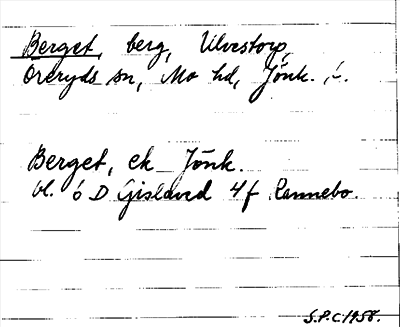 Berget, berg, Ulvestorp,
Öreryds sn, Mo hd, Jönk. l.
Berget, ek Jönk.
bl. 6 D Gislaved 4f Rannebo.
S.P.C. 1958.